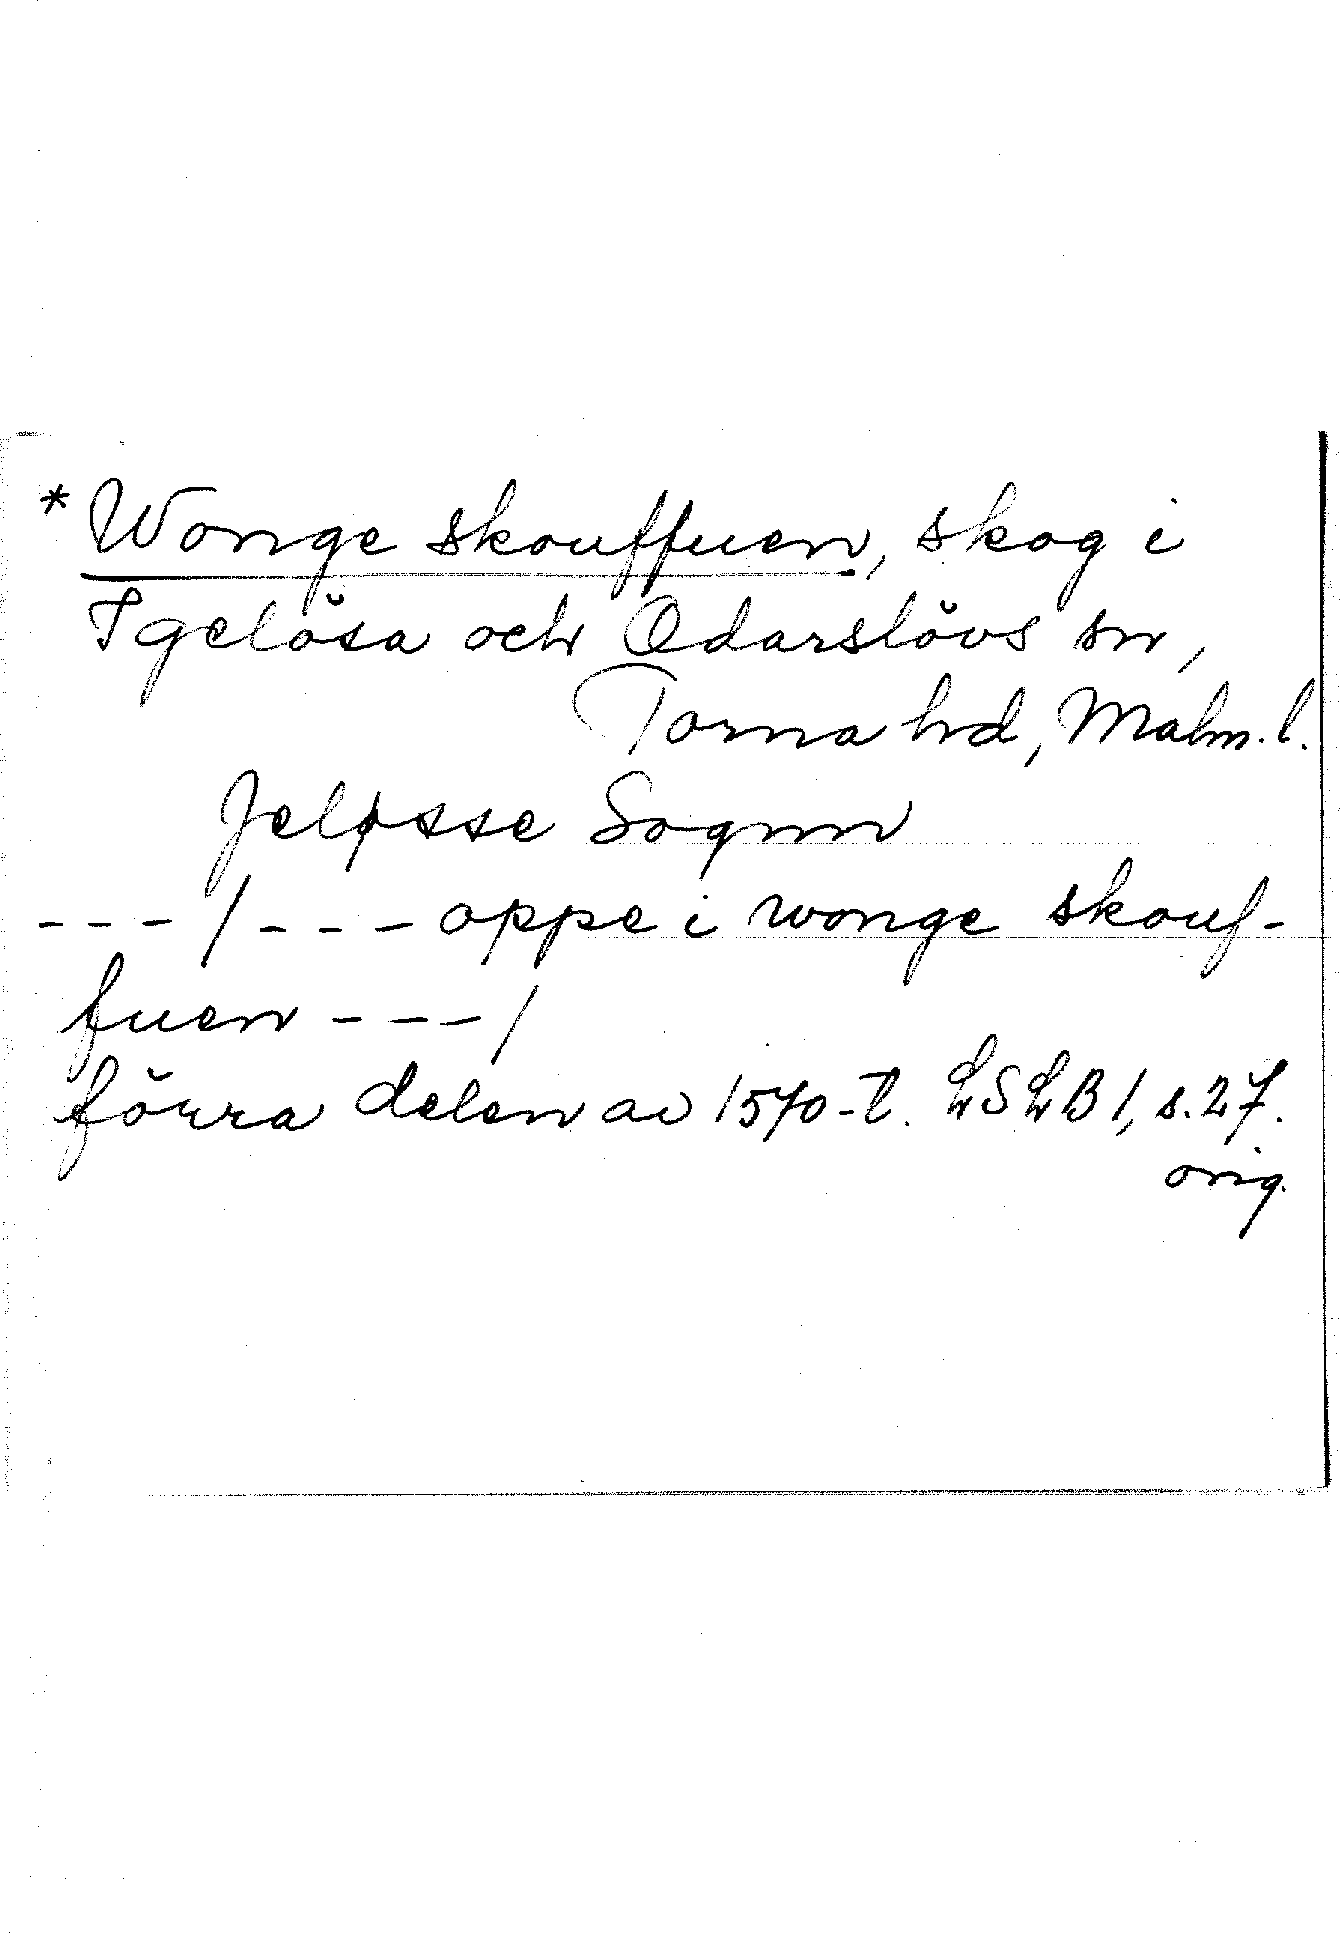 * Wonge skouffuen, skog i
Igelösa och Odarslövs sn,
Torna hd, Malm. l.
Jeløsse Sognn
---/---oppe i wonge skouf-
fuen ---/
förra delen av 1570-t. LSLB 1, s. 27.
orig.